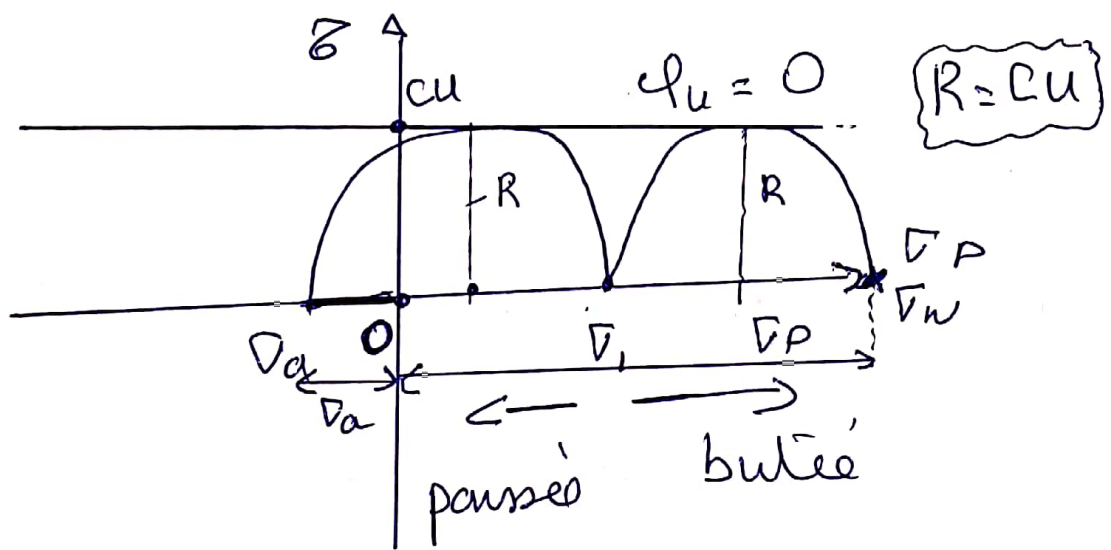 τ
CU
φu = 0
R = CU
R
R
σp
σn
O
σa
σ1
σp
σa
poussée
butée